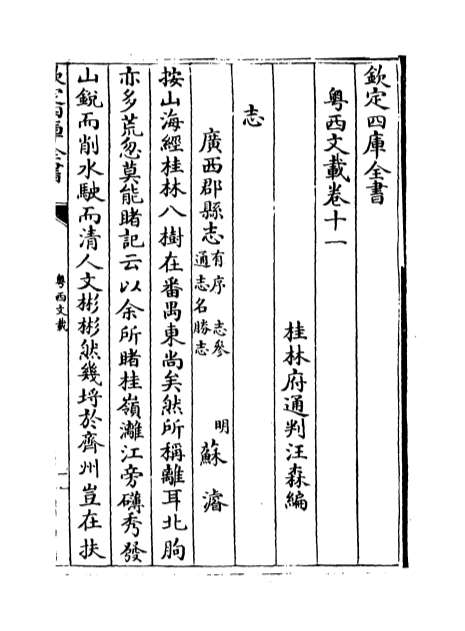 欽定四庫全書
粵西文載卷十一
桂林府通判汪森編
志
廣西郡縣志有序 志參通志名勝志 明 蘇濬
按山海經桂林八樹在番禺東尚矣然所稱離耳北朐
亦多荒忽莫能睹記云以余所睹桂嶺灕江旁礴秀發
山銳而削水駛而清人文彬彬然幾埒於齊州豈在扶
欽定四庫全書
粵西文載